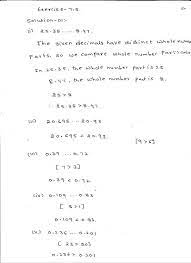 Exercise-7.5
Solution-01:
i) 25.35 ..... 8.47.
The given decimals have distinct whole number
parts, so we compare whole number parts only
In 25.35, the whole number part is 25
8.47, the whole number part is 8.
25 > 8
∴ 25.35 > 8.47.
20.695 ... 20.93
[9>6]
20.695 < 20.93
(iii) 0.29 ... 0.92
0.29 < 0.92
(iv) 0.109 .... 0.83
[8>1]
0.109 < 0.83
(v) 0.236 ... 0.201
0.236 > 0.201